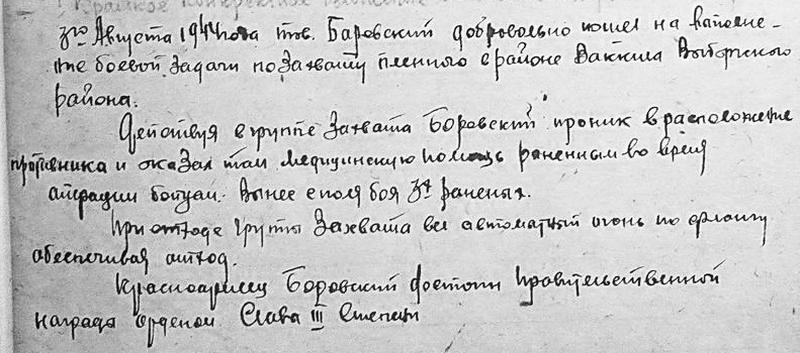 3го Августа 1944 года тов. Боровский добровольно пошел на выполне-
ние боевой задачи по захвату пленного в районе Ваккила Выборгского
района.
Действуя в группе захвата Боровский проник в расположение
противника и оказал там медицинскую помощь раненным во время
операции бойцам. Вынес с поля боя 3х раненых.
При отходе группы захвата вел автоматный огонь по флангу
обеспечивая отход.
Красноармеец Боровский достоин правительственной
награды орденом Слава III степени